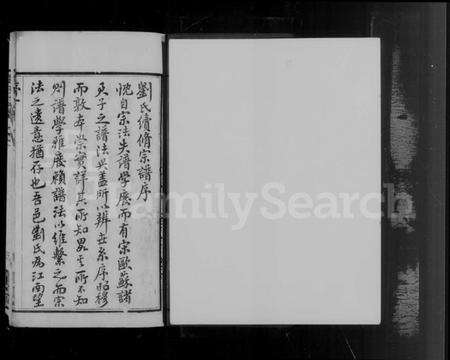 劉氏續脩宗譜序
慨自宗法失譜學廢而有宋歐蘇諸
君子之譜法興蓋所以辨世系序昭穆
而敦本崇實詳其所知畧其所不知
則譜學雖廢頋譜法以維繫之而宗
法之遺意猶存也吾邑劉氏為江南望
FamilySearch